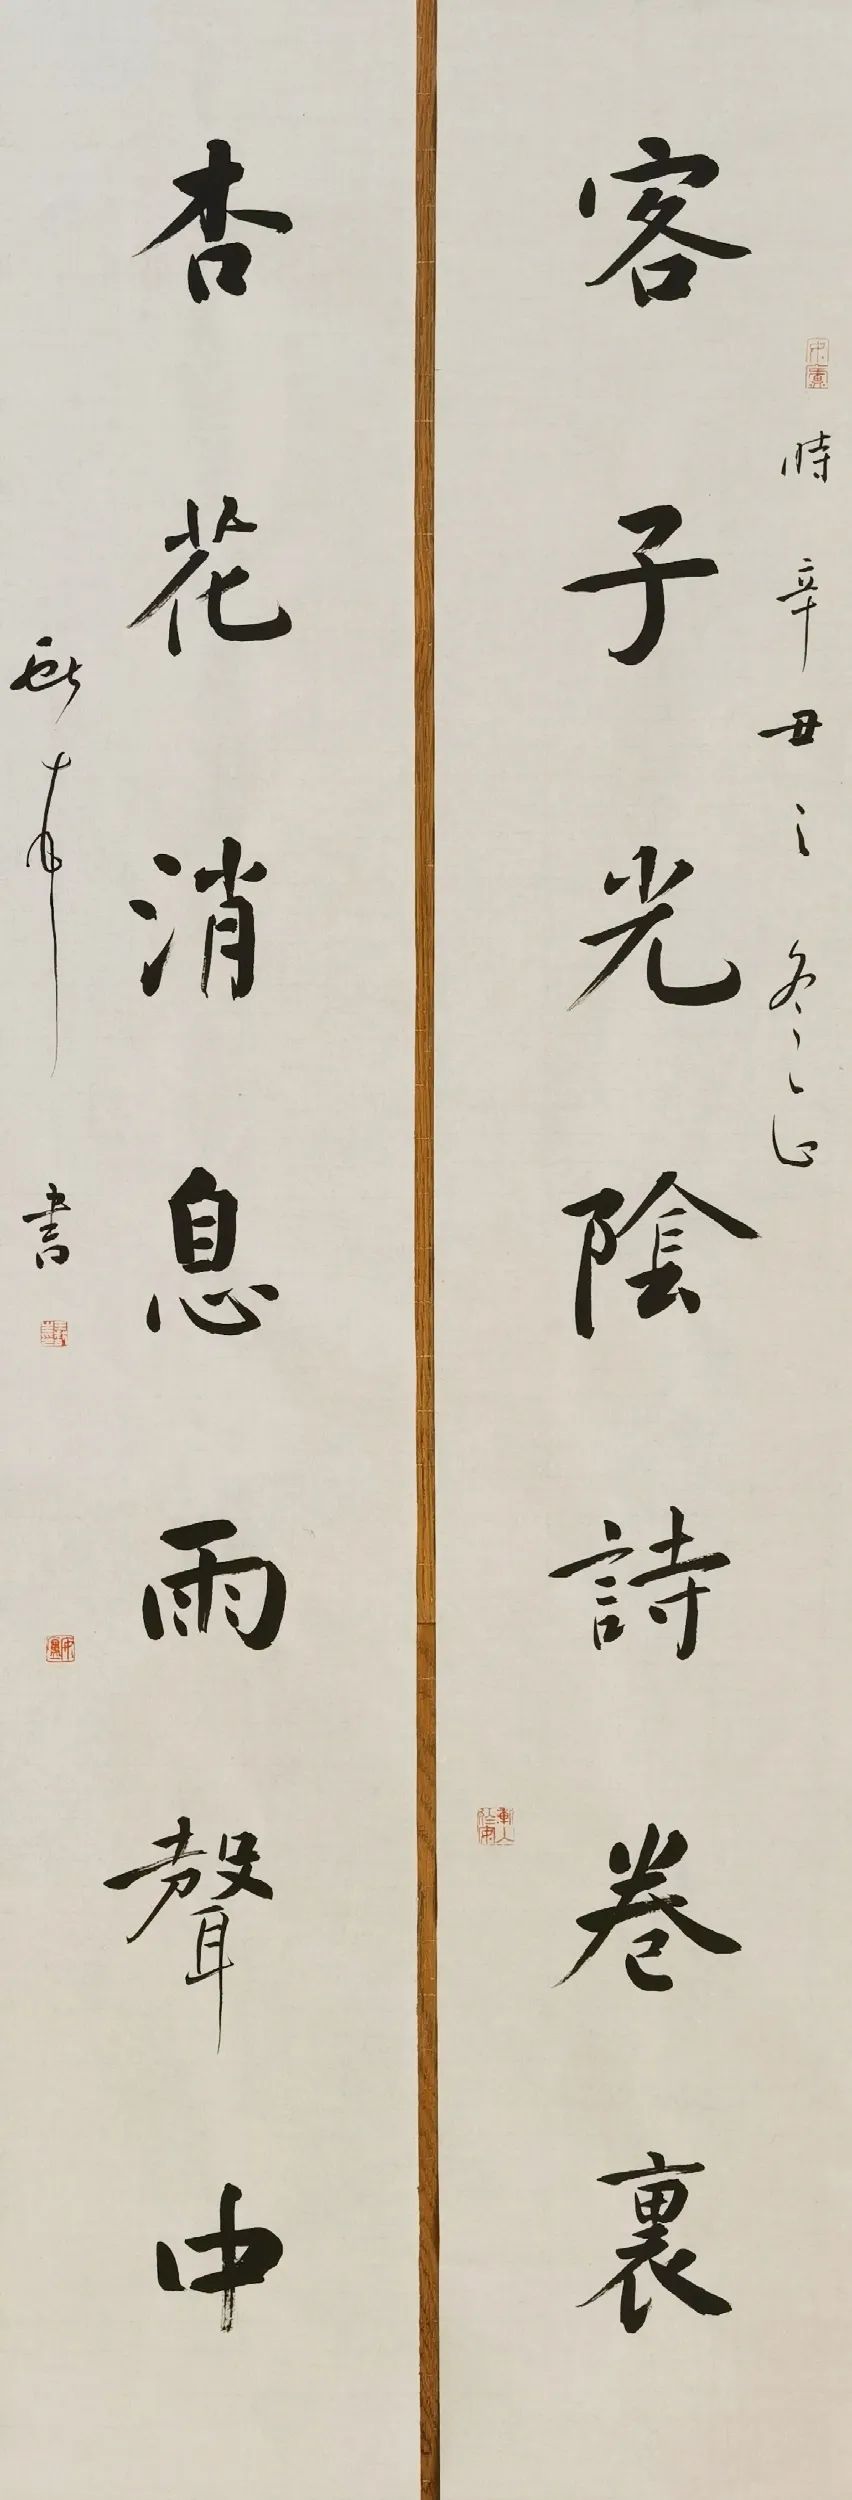 客子光陰詩卷裏
時辛丑之冬
杏花消息雨聲中
書